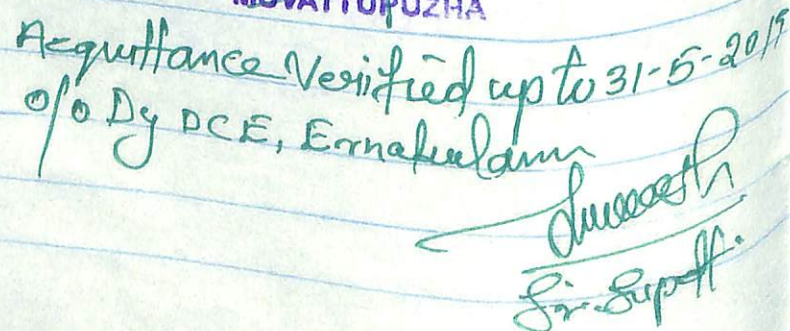 MUVATTUPUZHA
Acquittance Verified up to 31-5-2019
o/o Dy DCE, Ernakulam
Sr. Supdt.